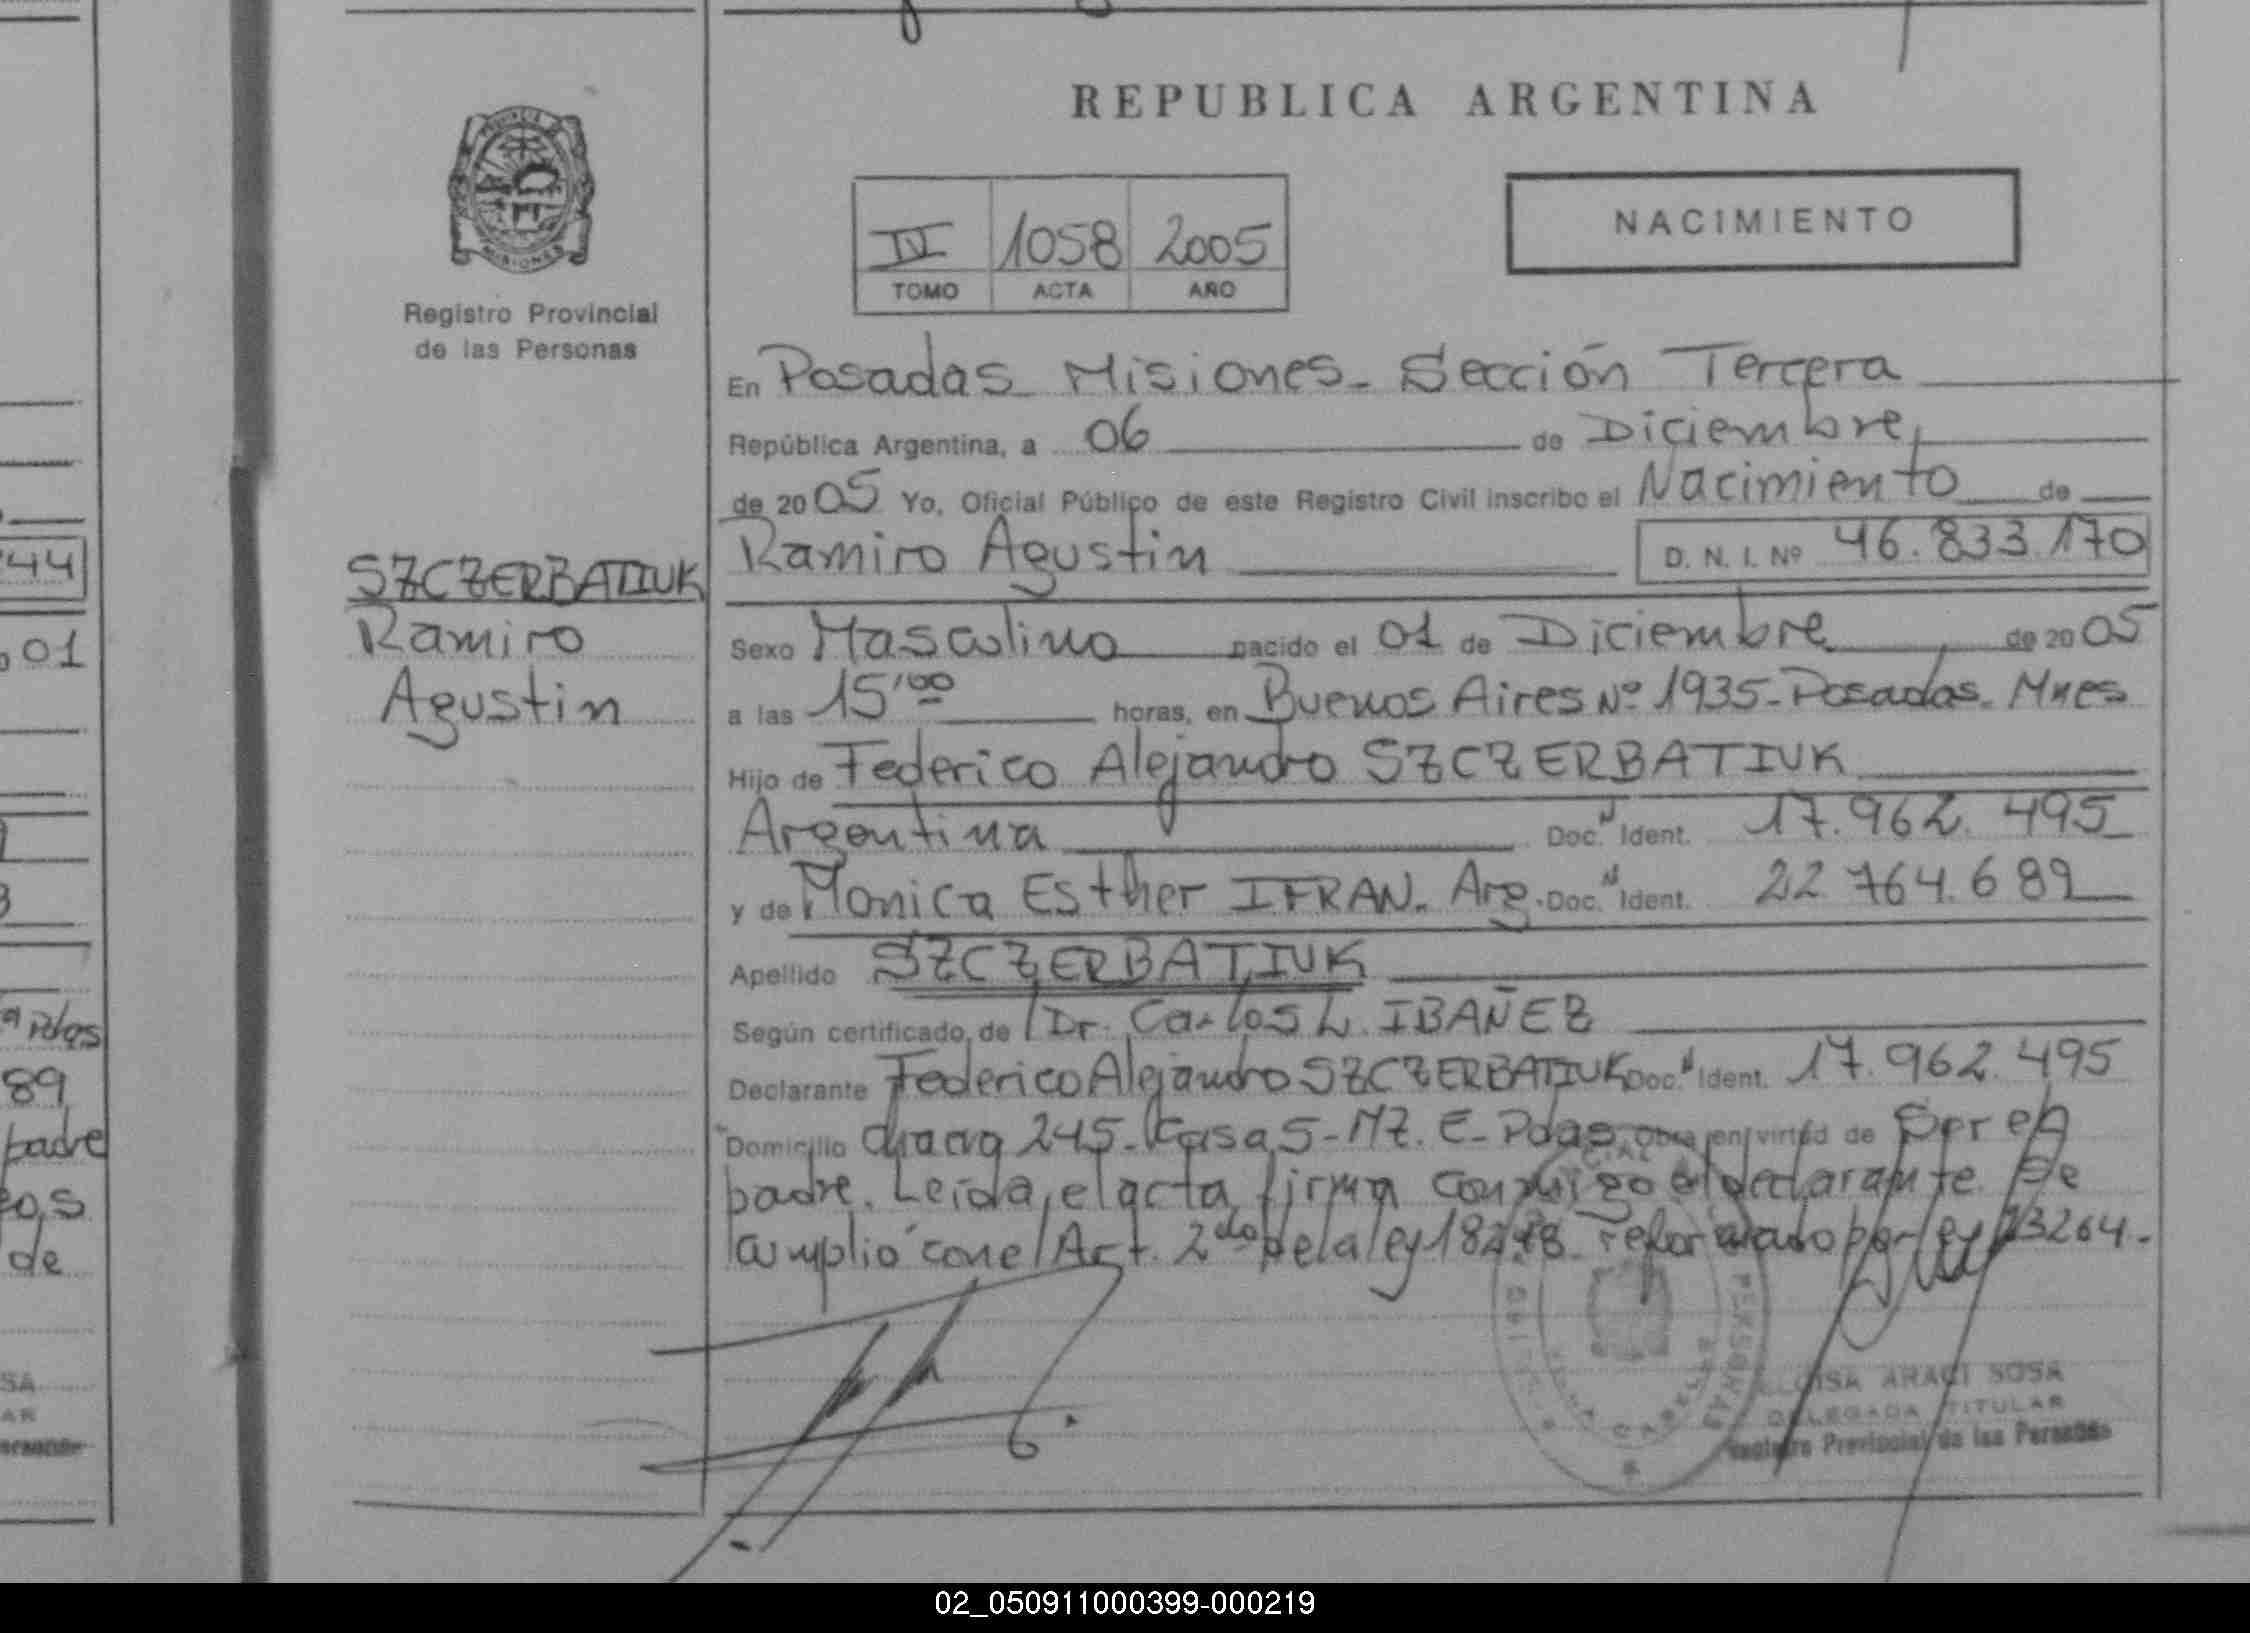 REPUBLICA ARGENTINA
PROVINCIA DE
MISIONES
Registro Provincial
de las Personas
IV 1058 2005
TOMO ACTA AÑO
NACIMIENTO
En Posadas Misiones - Sección Tercera
República Argentina, a 06 de Diciembre
de 2005 Yo, Oficial Público de este Registro Civil inscribo el Nacimiento de
Ramiro Agustin D. N. I. Nº 46.833.170
SZCZERBATIUK
Ramiro
Agustin
Sexo Masculino nacido el 01 de Diciembre de 2005
a las 15'00 horas, en Buenos Aires Nº 1935 - Posadas. Mnes
Hijo de Federico Alejandro SZCZERBATIUK
Argentina Doc. N Ident. 17.962.495
y de Monica Esther IFRAN. Arg. Doc. N Ident. 22.764.689
Apellido SZCZERBATIUK
Según certificado de Dr. Carlos L. IBAÑEZ
Declarante Federico Alejandro SZCZERBATIUK Doc. N Ident. 17.962.495
Domicilio chacra 245 - Casa 5 - MZ. E - Pdas obra en virtud de Ser el
padre. Leída el acta firma conmigo el declarante. Se
cumplió con el Art. 2do de la ley 18248 reformado por ley 23264.-
ELOISA ARACI SOSA
DELEGADA TITULAR
Registro Provincial de las Personas
44
01
Pdas
89
padre
de
SA
AR
02_050911000399-000219